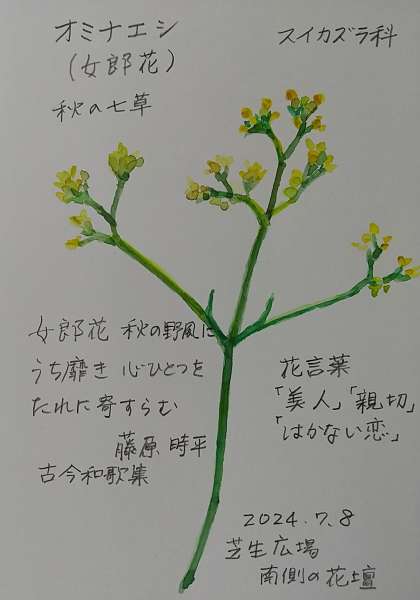 オミナエシ
(女郎花)
秋の七草
スイカズラ科
女郎花 秋の野風に
うち靡き 心ひとつを
たれに寄すらむ
藤原時平
古今和歌集
花言葉
「美人」「親切」
「はかない恋」
2024.7.8
芝生広場
南側の花壇